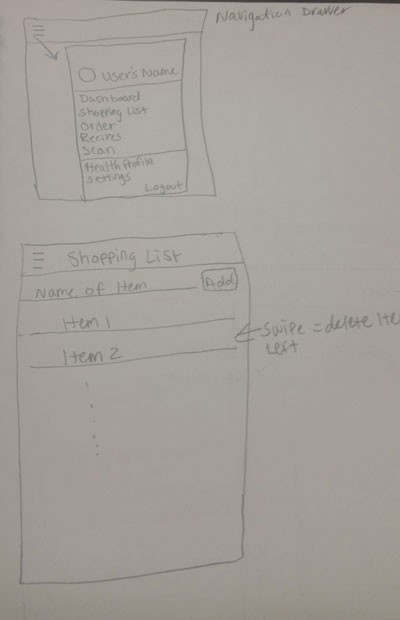 Navigation Drawer
User's Name
Dashboard
Shopping List
Order
Recipes
Scan
Health Profile
Settings
Logout
Shopping List
Name of Item
Add
Item 1
Item 2
Swipe = delete Ite
Left